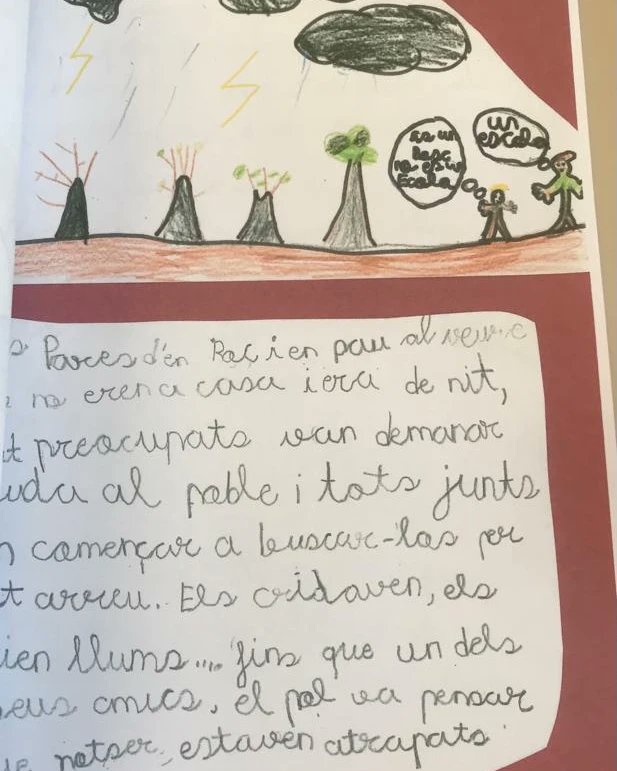 un
escala
Escala
Pares d'en Roc i en pau al veure
no eren a casa i era de nit,
t preocupats van demanar
uda al poble i tots junts
n començar a buscar-los per
t arreu. Els cridaven, els
ien llums.... fins que un dels
seus amics, el pol va pensar
ue potser, estaven atrapats